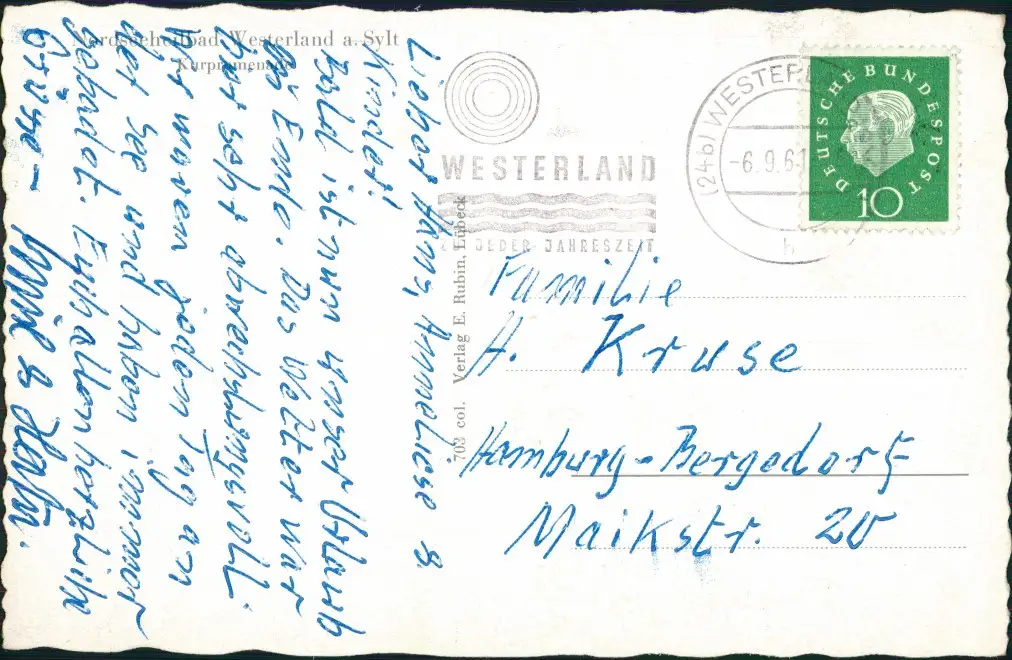 Nordseeheilbad Westerland a. Sylt
Kurpromenade
Lieber Hans, Anneliese &
Kinder!
Bald ist nun unser Urlaub
zu Ende. Das Wetter war
hier sehr abwechslungsvoll.
Wir waren jeden Tag an
der See und haben immer
gebadet. Erhaltet herzliche
Grüsse –
703 col. Verlag E. Rubin, Lübeck
WESTERLAND
ZU JEDER JAHRESZEIT
(24b) WESTERL
-6.9.61
h
DEUTSCHE BUNDESPOST
10
Familie
H. Kruse
Hamburg-Bergedorf
Maikstr. 20